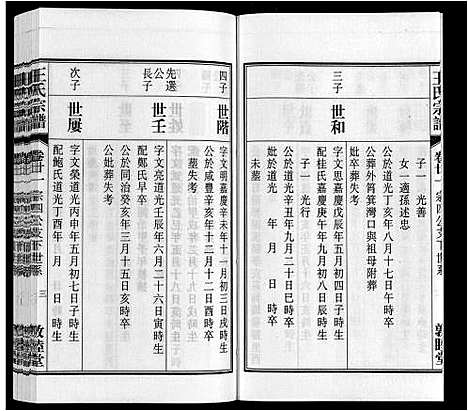 王氏宗譜
卷廿一 宗四公支下世系
敦睦堂
子一 光善
女一適孫述忠
公歿道光丁亥年八月十七日午時卒
公葬外筲箕灣口與祖母附葬
妣卒葬失考
三子
世和
字文思嘉慶戊辰年五月初四日子時生
配桂氏嘉慶庚午年九月初十日辰時生
公於道光辛丑年九月二十日巳時卒
妣於道光 年 月 日 時卒
未葬
四子
世階
字文明嘉慶辛未年十一月初三日戌時生
公於咸豐辛亥年十二月十二日酉時卒
墓失考
先選公長子
世壬
字文亮道光壬辰年六月二十六日寅時生
配鄭氏早卒
公於同治癸亥年三月十五日亥時卒
公妣葬失考
次子
世屢
字文榮道光丙申年五月初七日子時生
配鮑氏道光丁酉年 月 日 時生
王氏宗譜
卷廿一 宗四公支下世系 三
敦睦堂